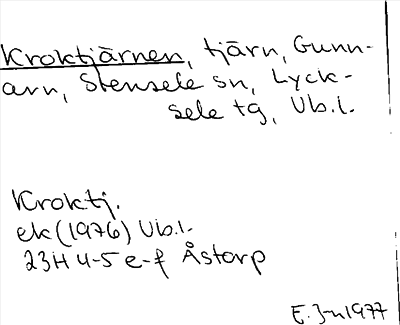 Kroktjärnen, tjärn, Gunn-
arn, Stensele sn, Lyck-
sele tg, Vb.l.
Kroktj.
ek (1976) Vb.l.
23H 4-5 e-f Åstorp
E. J-n 1977